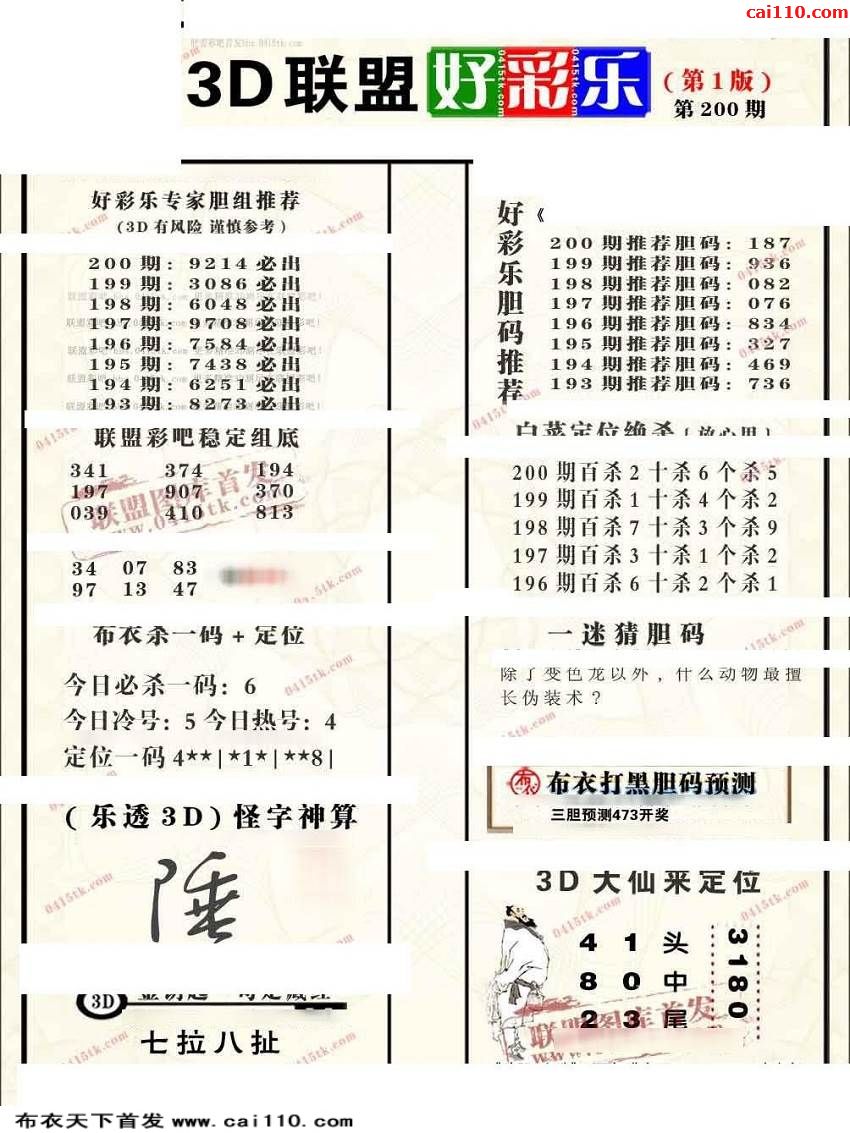 cai110.com
3D联盟好彩乐
0415tk.com
0415tk.com
0415tk.com
(第1版)
第200期
好彩乐专家胆组推荐
(3D有风险 谨慎参考)
200期: 9214必出
199期: 3086必出
198期: 6048必出
197期: 9708必出
196期: 7584必出
195期: 7438必出
194期: 6251必出
193期: 8273必出
联盟彩吧稳定组底
341 374 194
197 907 370
039 410 813
联盟图库首发
www.0415tk.com
34 07 83
97 13 47
布衣杀一码+定位
今日必杀一码: 6
今日冷号: 5 今日热号: 4
定位一码 4**|*1*|**8|
(乐透3D)怪字神算
陲
3D
七拉八扯
好彩乐胆码推荐
《
200期推荐胆码: 187
199期推荐胆码: 936
198期推荐胆码: 082
197期推荐胆码: 076
196期推荐胆码: 834
195期推荐胆码: 327
194期推荐胆码: 469
193期推荐胆码: 736
白菜定位绝杀
200期百杀2十杀6个杀5
199期百杀1十杀4个杀2
198期百杀7十杀3个杀9
197期百杀3十杀1个杀2
196期百杀6十杀2个杀1
一迷猜胆码
除了变色龙以外,什么动物最擅
长伪装术?
布衣打黑胆码预测
三胆预测473开奖
3D大仙来定位
4 1 头
8 0 中
2 3 尾
3180
联盟图库首发
布衣天下首发 www.cai110.com